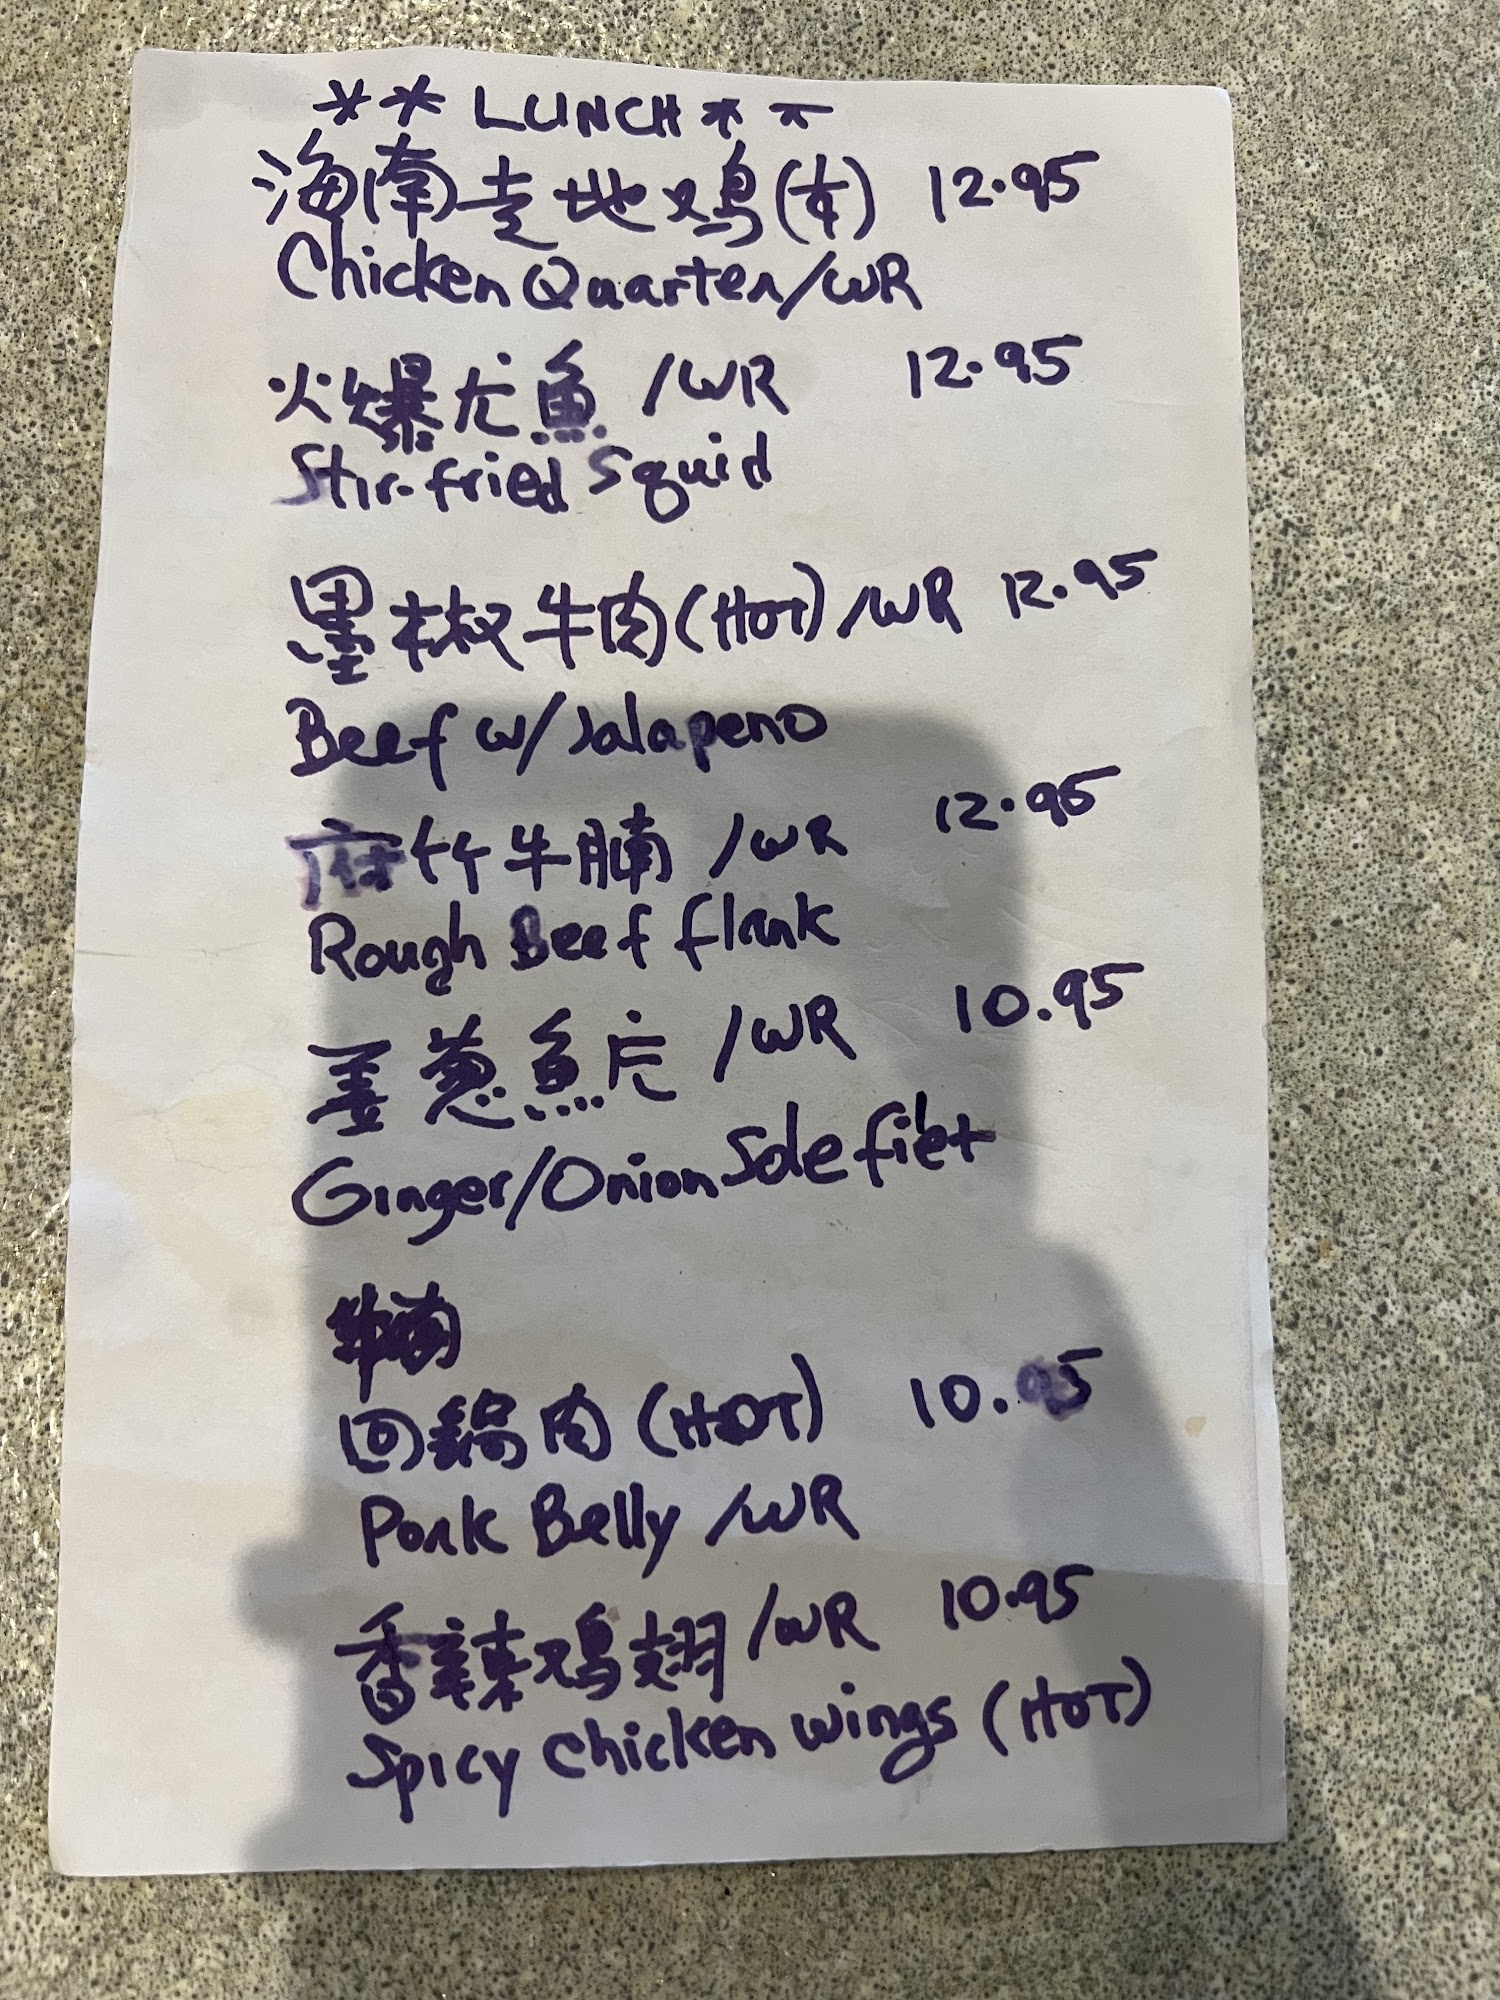 ** LUNCH **
海南走地鸡(¼) 12.95
Chicken Quarter/WR
火爆尤魚 /WR 12.95
Stir-fried Squid
墨椒牛肉(HOT)/WR 12.95
Beef w/Jalapeno
府竹牛腩 /WR 12.95
Rough Beef flank
姜葱魚片 /WR 10.95
Ginger/Onion Sole filet
回鍋肉 (HOT) 10.95
Pork Belly /WR
香辣鸡翅 /WR 10.95
Spicy Chicken Wings (HOT)